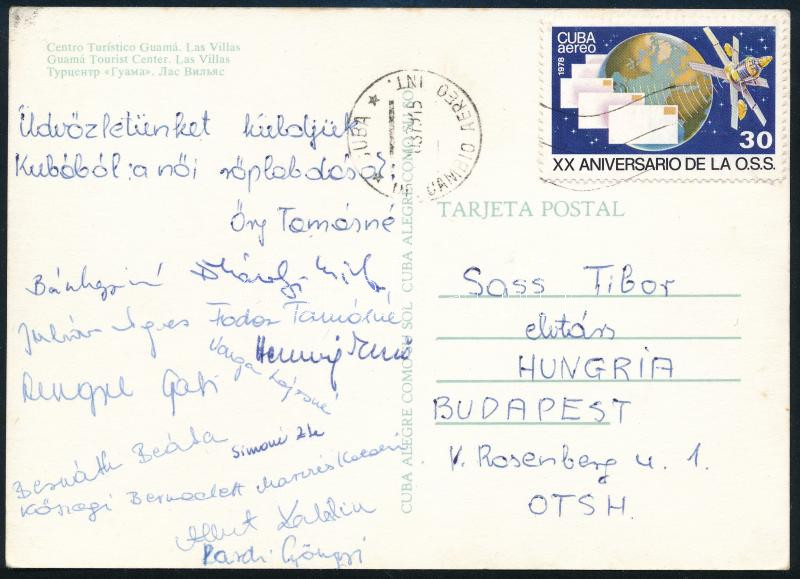 Centro Turístico Guamá. Las Villas
Guamá Tourist Center. Las Villas
Турцентр «Гуама». Лас Вильяс
Üdvözletünket küldjük
Kubából: a női röplabdások:
Őry Tamásné
Bánhegyiné
Julián Ágnes Fodor Tamásné
Varga Lajosné
Gabi
Bernáth Beáta Simoné
Kőszegi Bernadett
Albert Katalin
Bardi Gyöngyi
CUBA ALEGRE COMO SU SOL CUBA ALEGRE COMO SU SOL
CUBA
CAMBIO AEREO INT.
CUBA
aéreo
1978
30
XX ANIVERSARIO DE LA O.S.S.
TARJETA POSTAL
Sass Tibor
HUNGRIA
BUDAPEST
V. Rosenberg u. 1.
OTSH.